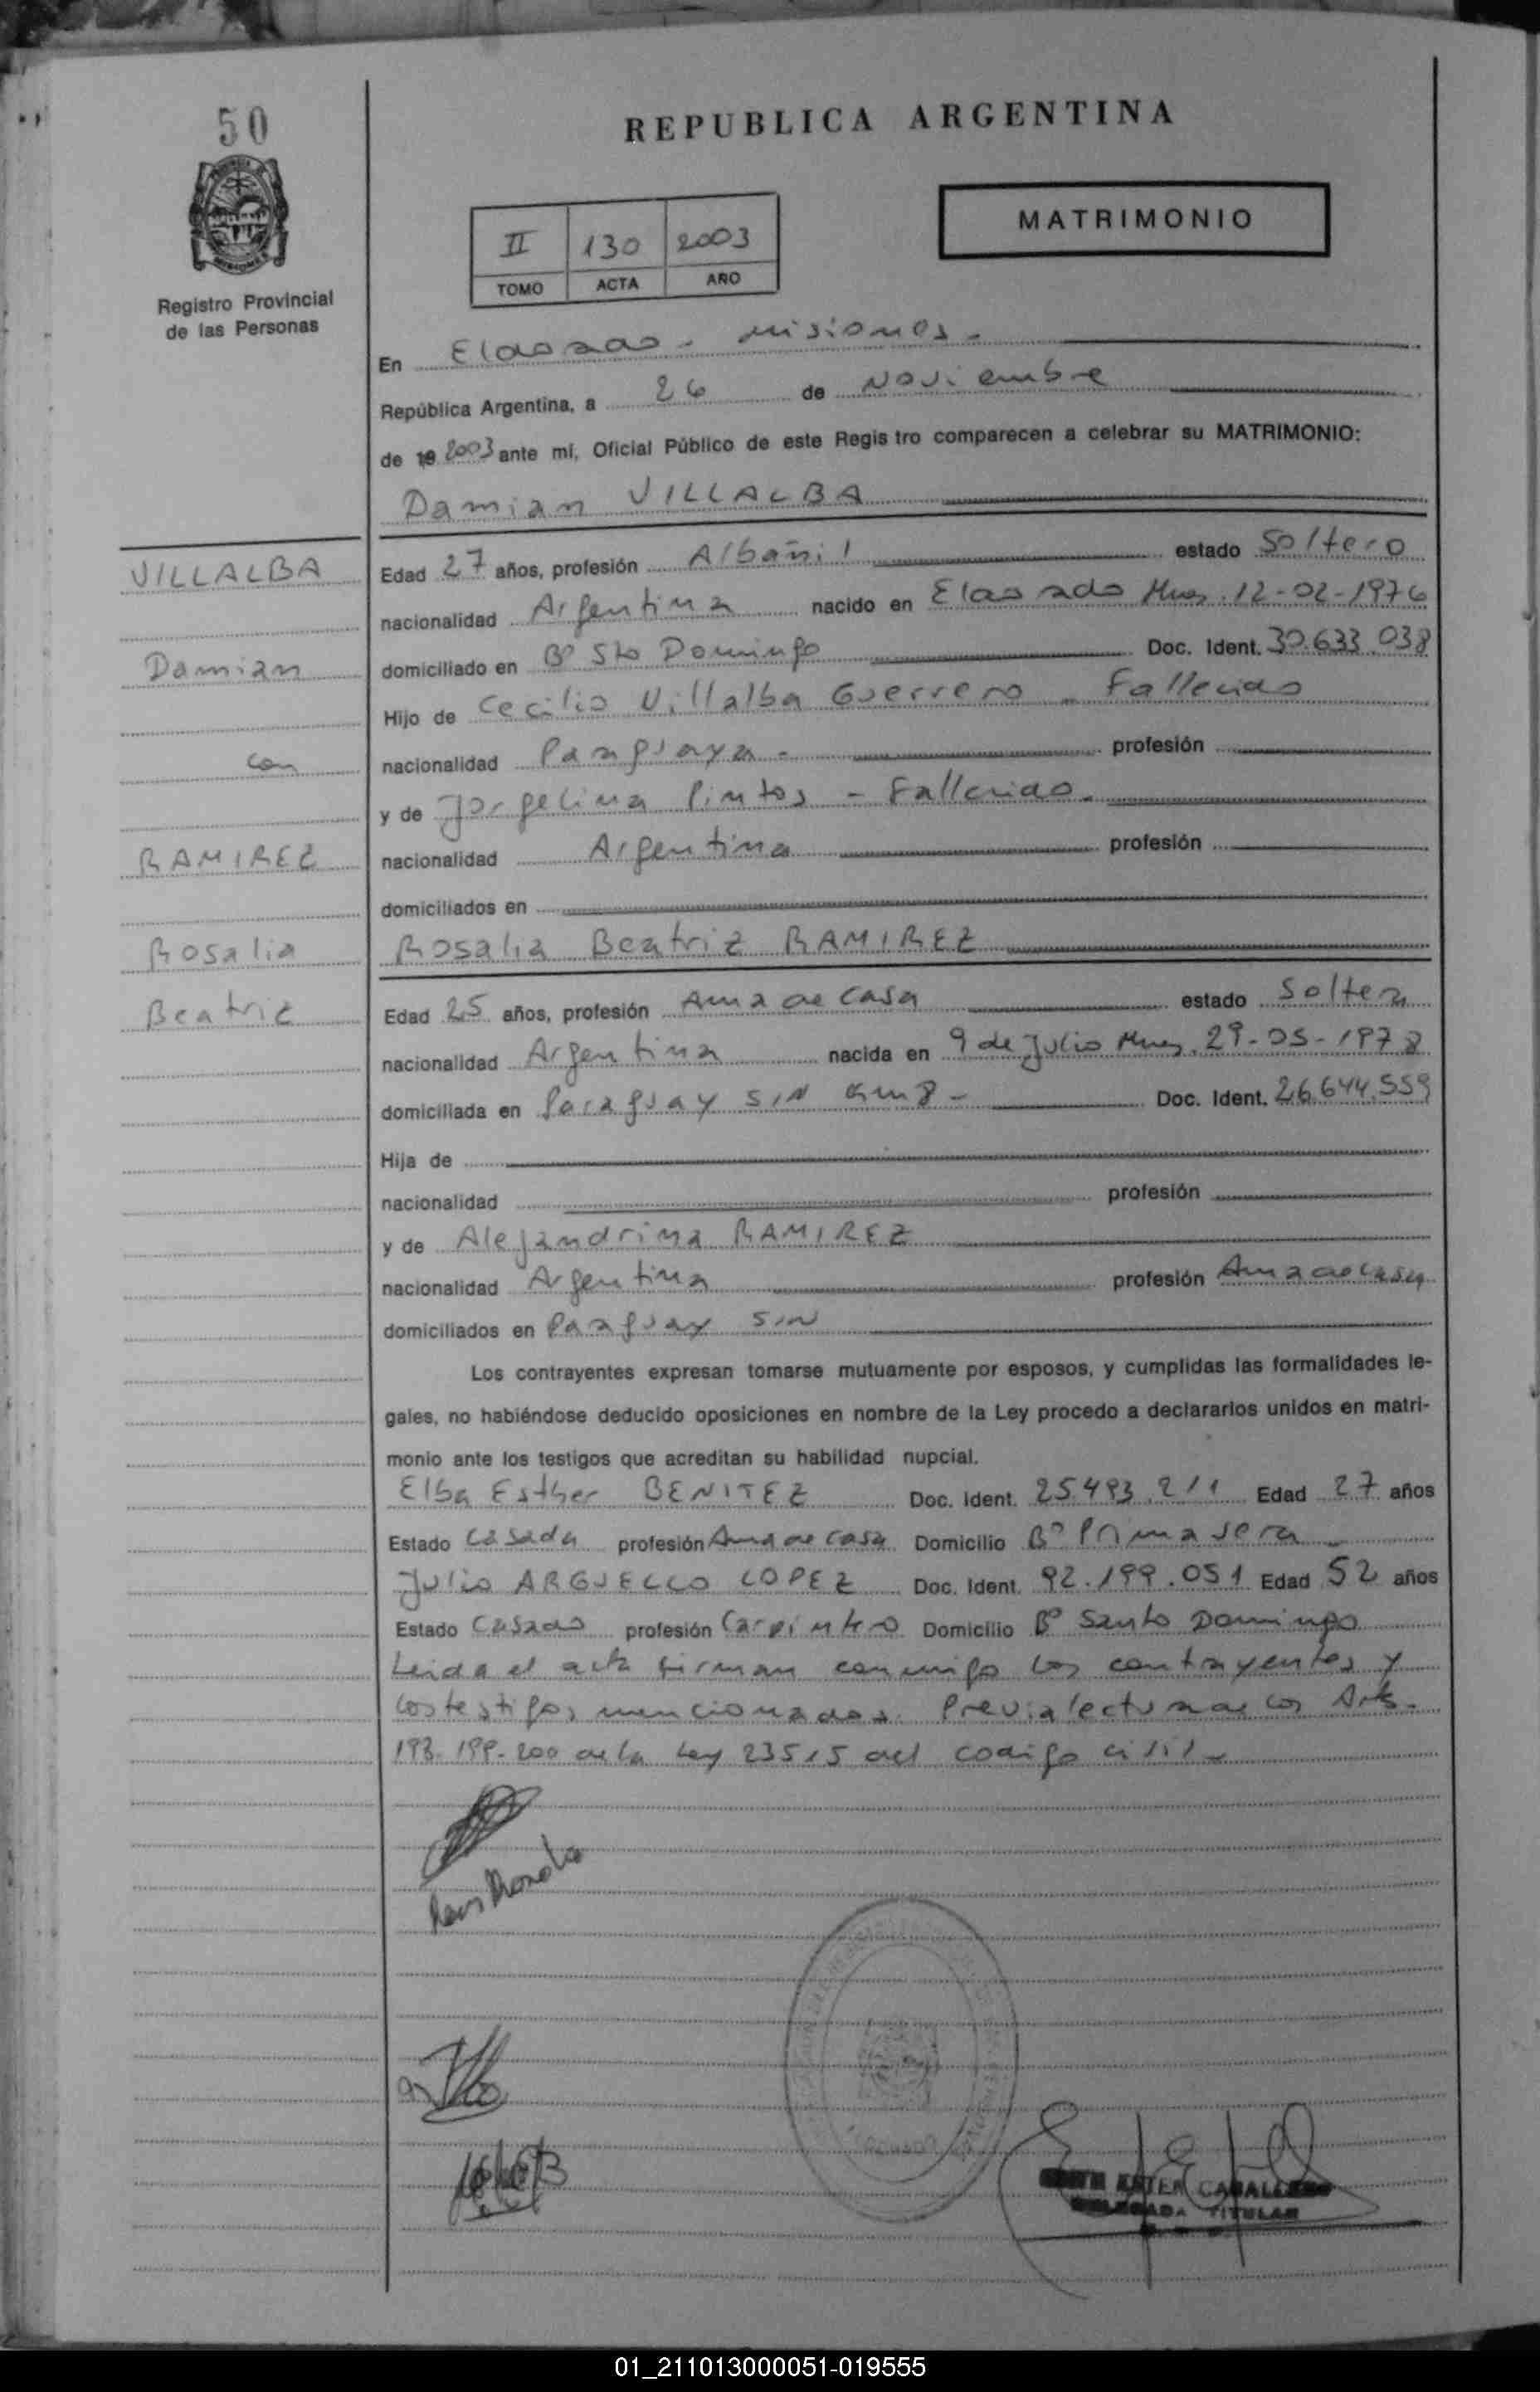 50
REPUBLICA ARGENTINA
MATRIMONIO
II 130 2003
TOMO ACTA AÑO
Registro Provincial
de las Personas
En Eldorado - Misiones -
República Argentina, a 26 de Noviembre
de 19 2003 ante mí, Oficial Público de este Regis tro comparecen a celebrar su MATRIMONIO:
Damian VILLALBA
VILLALBA
Damian
con
RAMIREZ
Rosalia
Beatriz
Edad 27 años, profesión Albañil estado Soltero
nacionalidad Argentina nacido en Eldorado Mnes. 12-02-1976
domiciliado en Bº Sto Domingo Doc. Ident. 30.633.038
Hijo de Cecilio Villalba Guerrero - Fallecido
nacionalidad Paraguaya - profesión
y de Jorgelina Pintos - Fallecido -
nacionalidad Argentina profesión
domiciliados en
Rosalia Beatriz RAMIREZ
Edad 25 años, profesión Ama de Casa estado Soltera
nacionalidad Argentina nacida en 9 de Julio Mnes. 29-05-1978
domiciliada en Paraguay S/N Km 8 - Doc. Ident. 26.644.559
Hija de
nacionalidad profesión
y de Alejandrina RAMIREZ
nacionalidad Argentina profesión Ama de Casa
domiciliados en Paraguay S/N
Los contrayentes expresan tomarse mutuamente por esposos, y cumplidas las formalidades le-
gales, no habiéndose deducido oposiciones en nombre de la Ley procedo a declararlos unidos en matri-
monio ante los testigos que acreditan su habilidad nupcial.
Elba Esther BENITEZ Doc. Ident. 25.493.211 Edad 27 años
Estado Casada profesión Ama de casa Domicilio Bº Primavera
Julio ARGUELLO LOPEZ Doc. Ident. 92.199.051 Edad 52 años
Estado Casado profesión Carpintero Domicilio Bº Santo Domingo
Leida el acta firman conmigo los contrayentes y
los testigos mencionados. Previa lectura de los Arts.
198-199-200 de la Ley 23515 del codigo civil -
ESTER CABALLERO
DELEGADA TITULAR
01_211013000051-019555